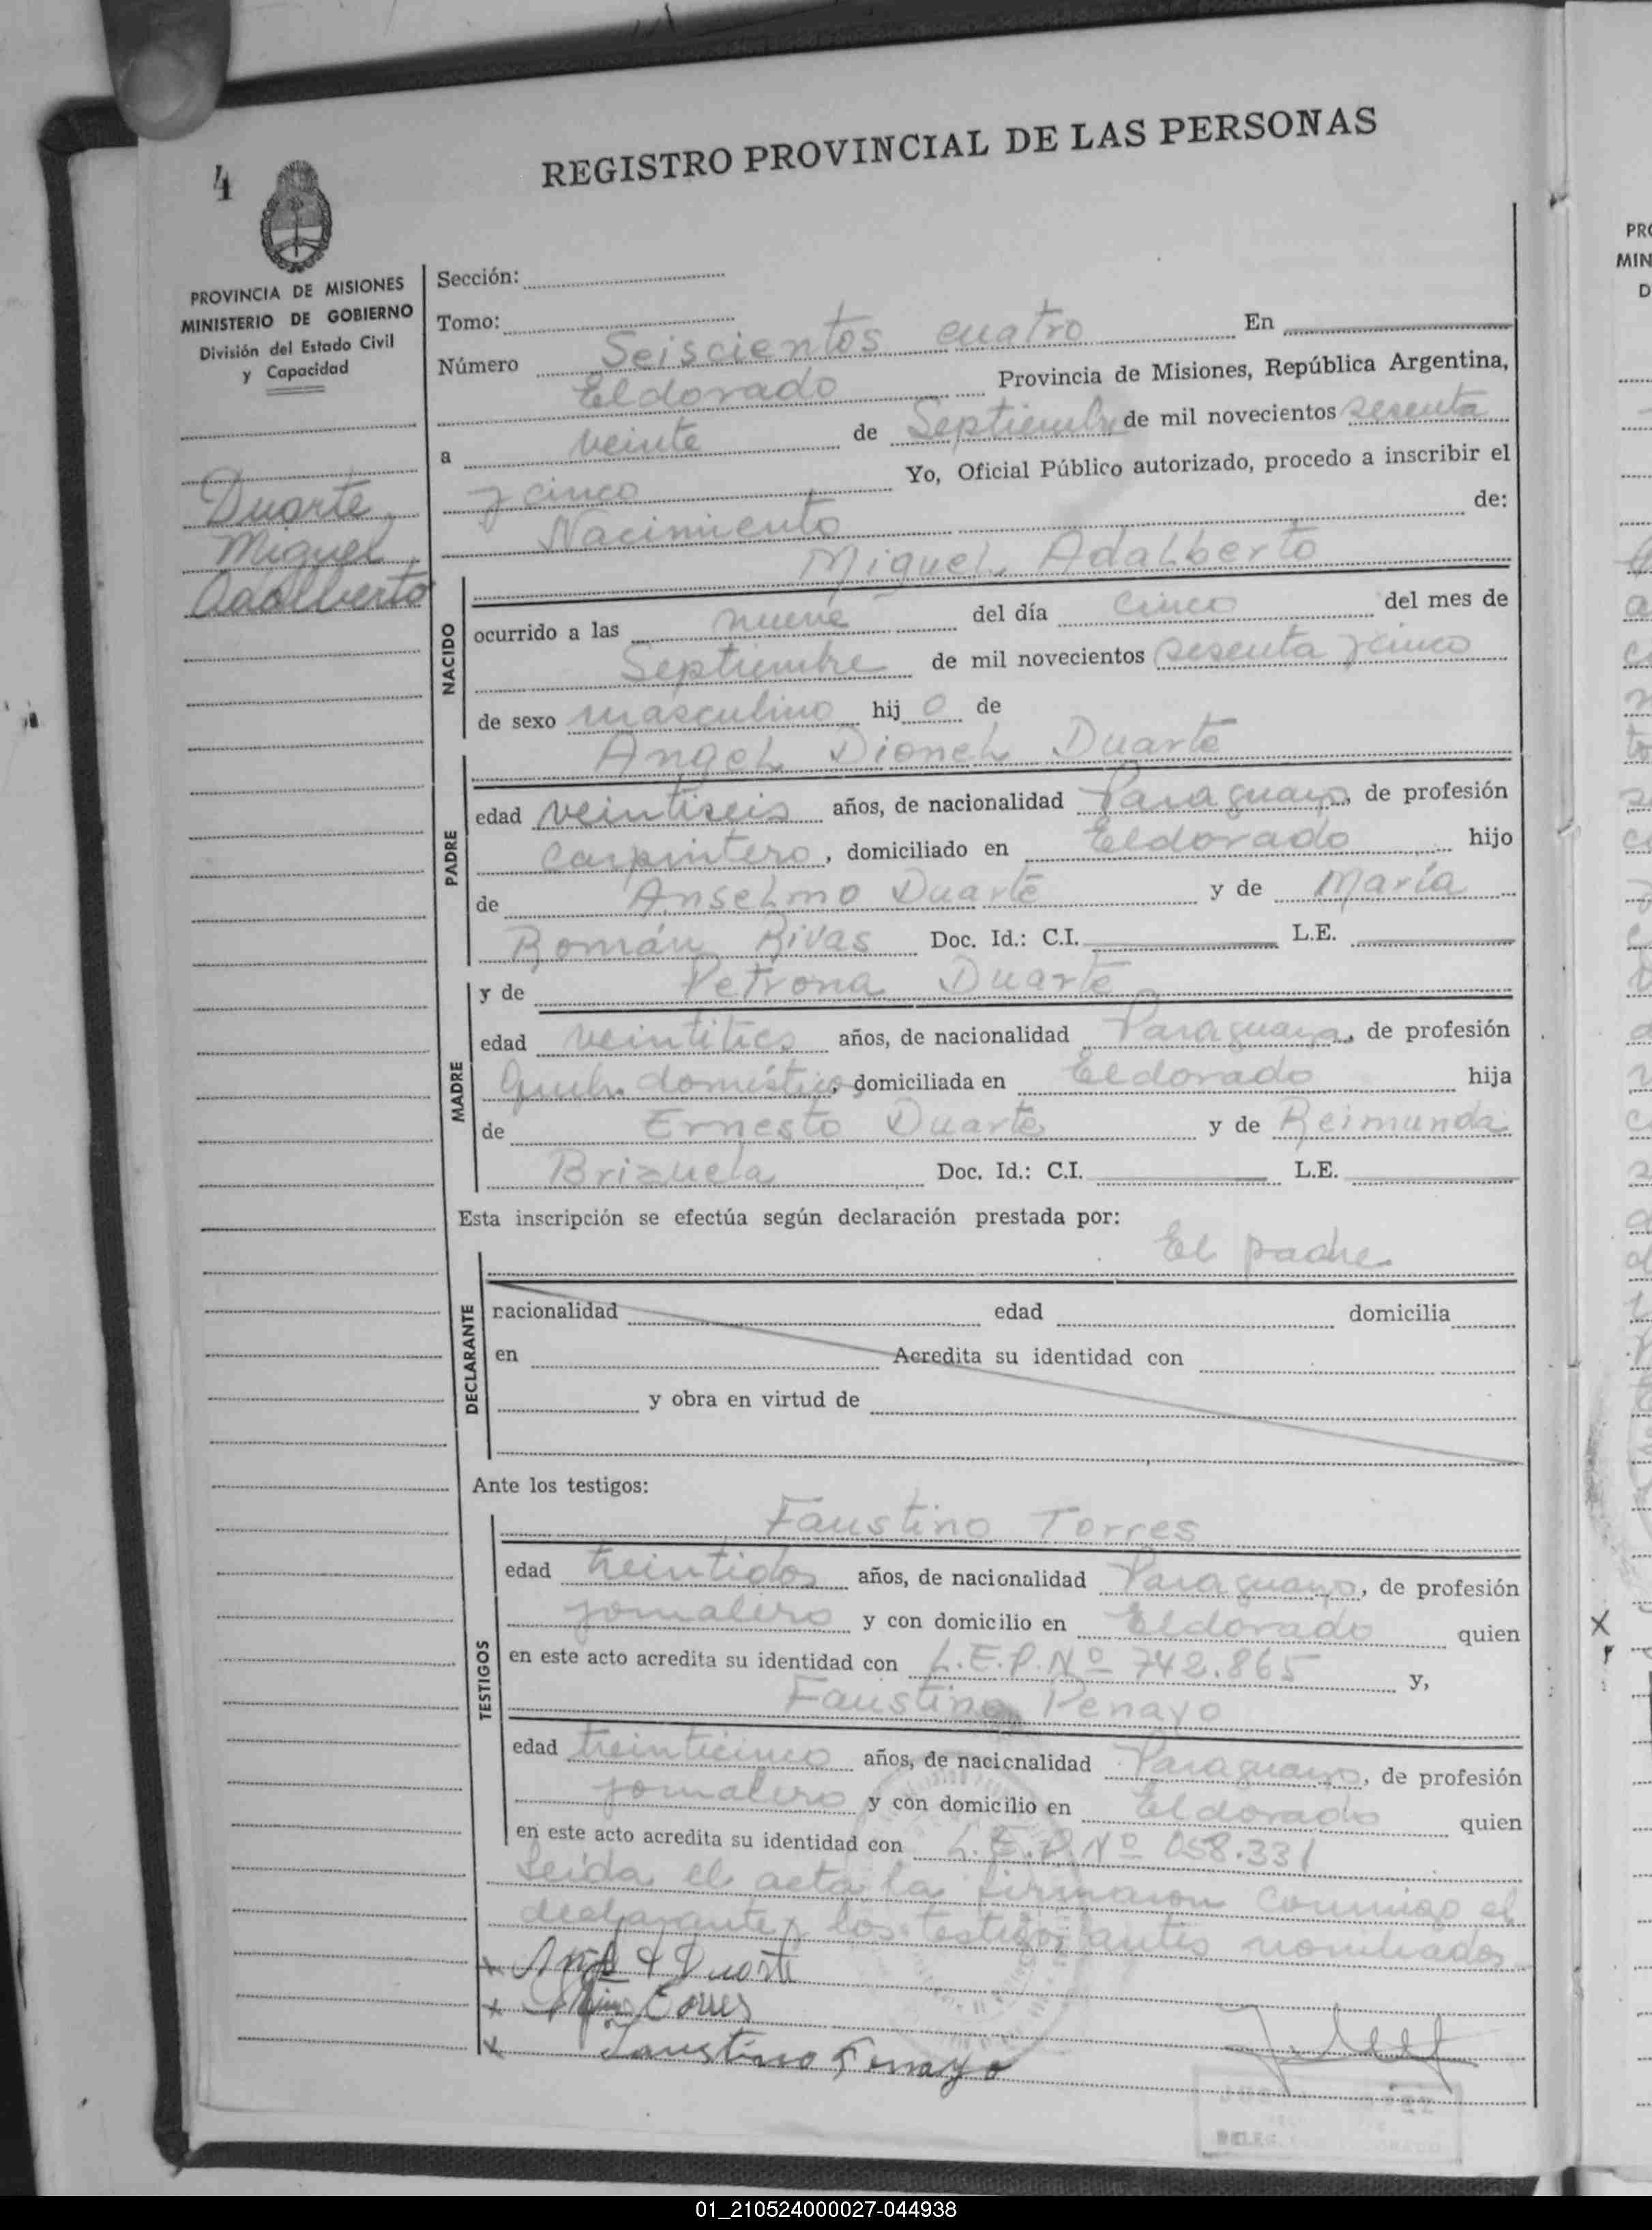 4
REGISTRO PROVINCIAL DE LAS PERSONAS
PROVINCIA DE MISIONES
MINISTERIO DE GOBIERNO
División del Estado Civil
y Capacidad
Duarte
Miguel
Adalberto
Sección:
Tomo:
Número Seiscientos cuatro En
Eldorado Provincia de Misiones, República Argentina,
a veinte de Septiembre de mil novecientos sesenta
y cinco Yo, Oficial Público autorizado, procedo a inscribir el
Nacimiento de:
Miguel Adalberto
NACIDO
ocurrido a las nueve del día cinco del mes de
Septiembre de mil novecientos sesenta y cinco
de sexo masculino hij o de
Angel Dionel Duarte
PADRE
edad veintiseis años, de nacionalidad Paraguayo, de profesión
Carpintero, domiciliado en Eldorado hijo
de Anselmo Duarte y de María
Román Rivas Doc. Id.: C.I. L.E.
y de Petrona Duarte
MADRE
edad veintitres años, de nacionalidad Paraguaya, de profesión
doméstico, domiciliada en Eldorado hija
de Ernesto Duarte y de Reimunda
Brizuela Doc. Id.: C.I. L.E.
Esta inscripción se efectúa según declaración prestada por:
El padre
DECLARANTE
nacionalidad edad domicilia
en Acredita su identidad con
y obra en virtud de
Ante los testigos:
Faustino Torres
TESTIGOS
edad treintidos años, de nacionalidad Paraguayo, de profesión
jornalero y con domicilio en Eldorado quien
en este acto acredita su identidad con L.E.P. Nº 742.865 y,
Faustino Penayo
edad treinticinco años, de nacionalidad Paraguayo, de profesión
jornalero y con domicilio en Eldorado quien
en este acto acredita su identidad con L.E.P. Nº 058.331
Leída el acta, la firmaron conmigo el
declarante y los testigos antes nombrados
x Duarte
x Torres
x Faustino Penayo
PRO
MIN
D
01_210524000027-044938